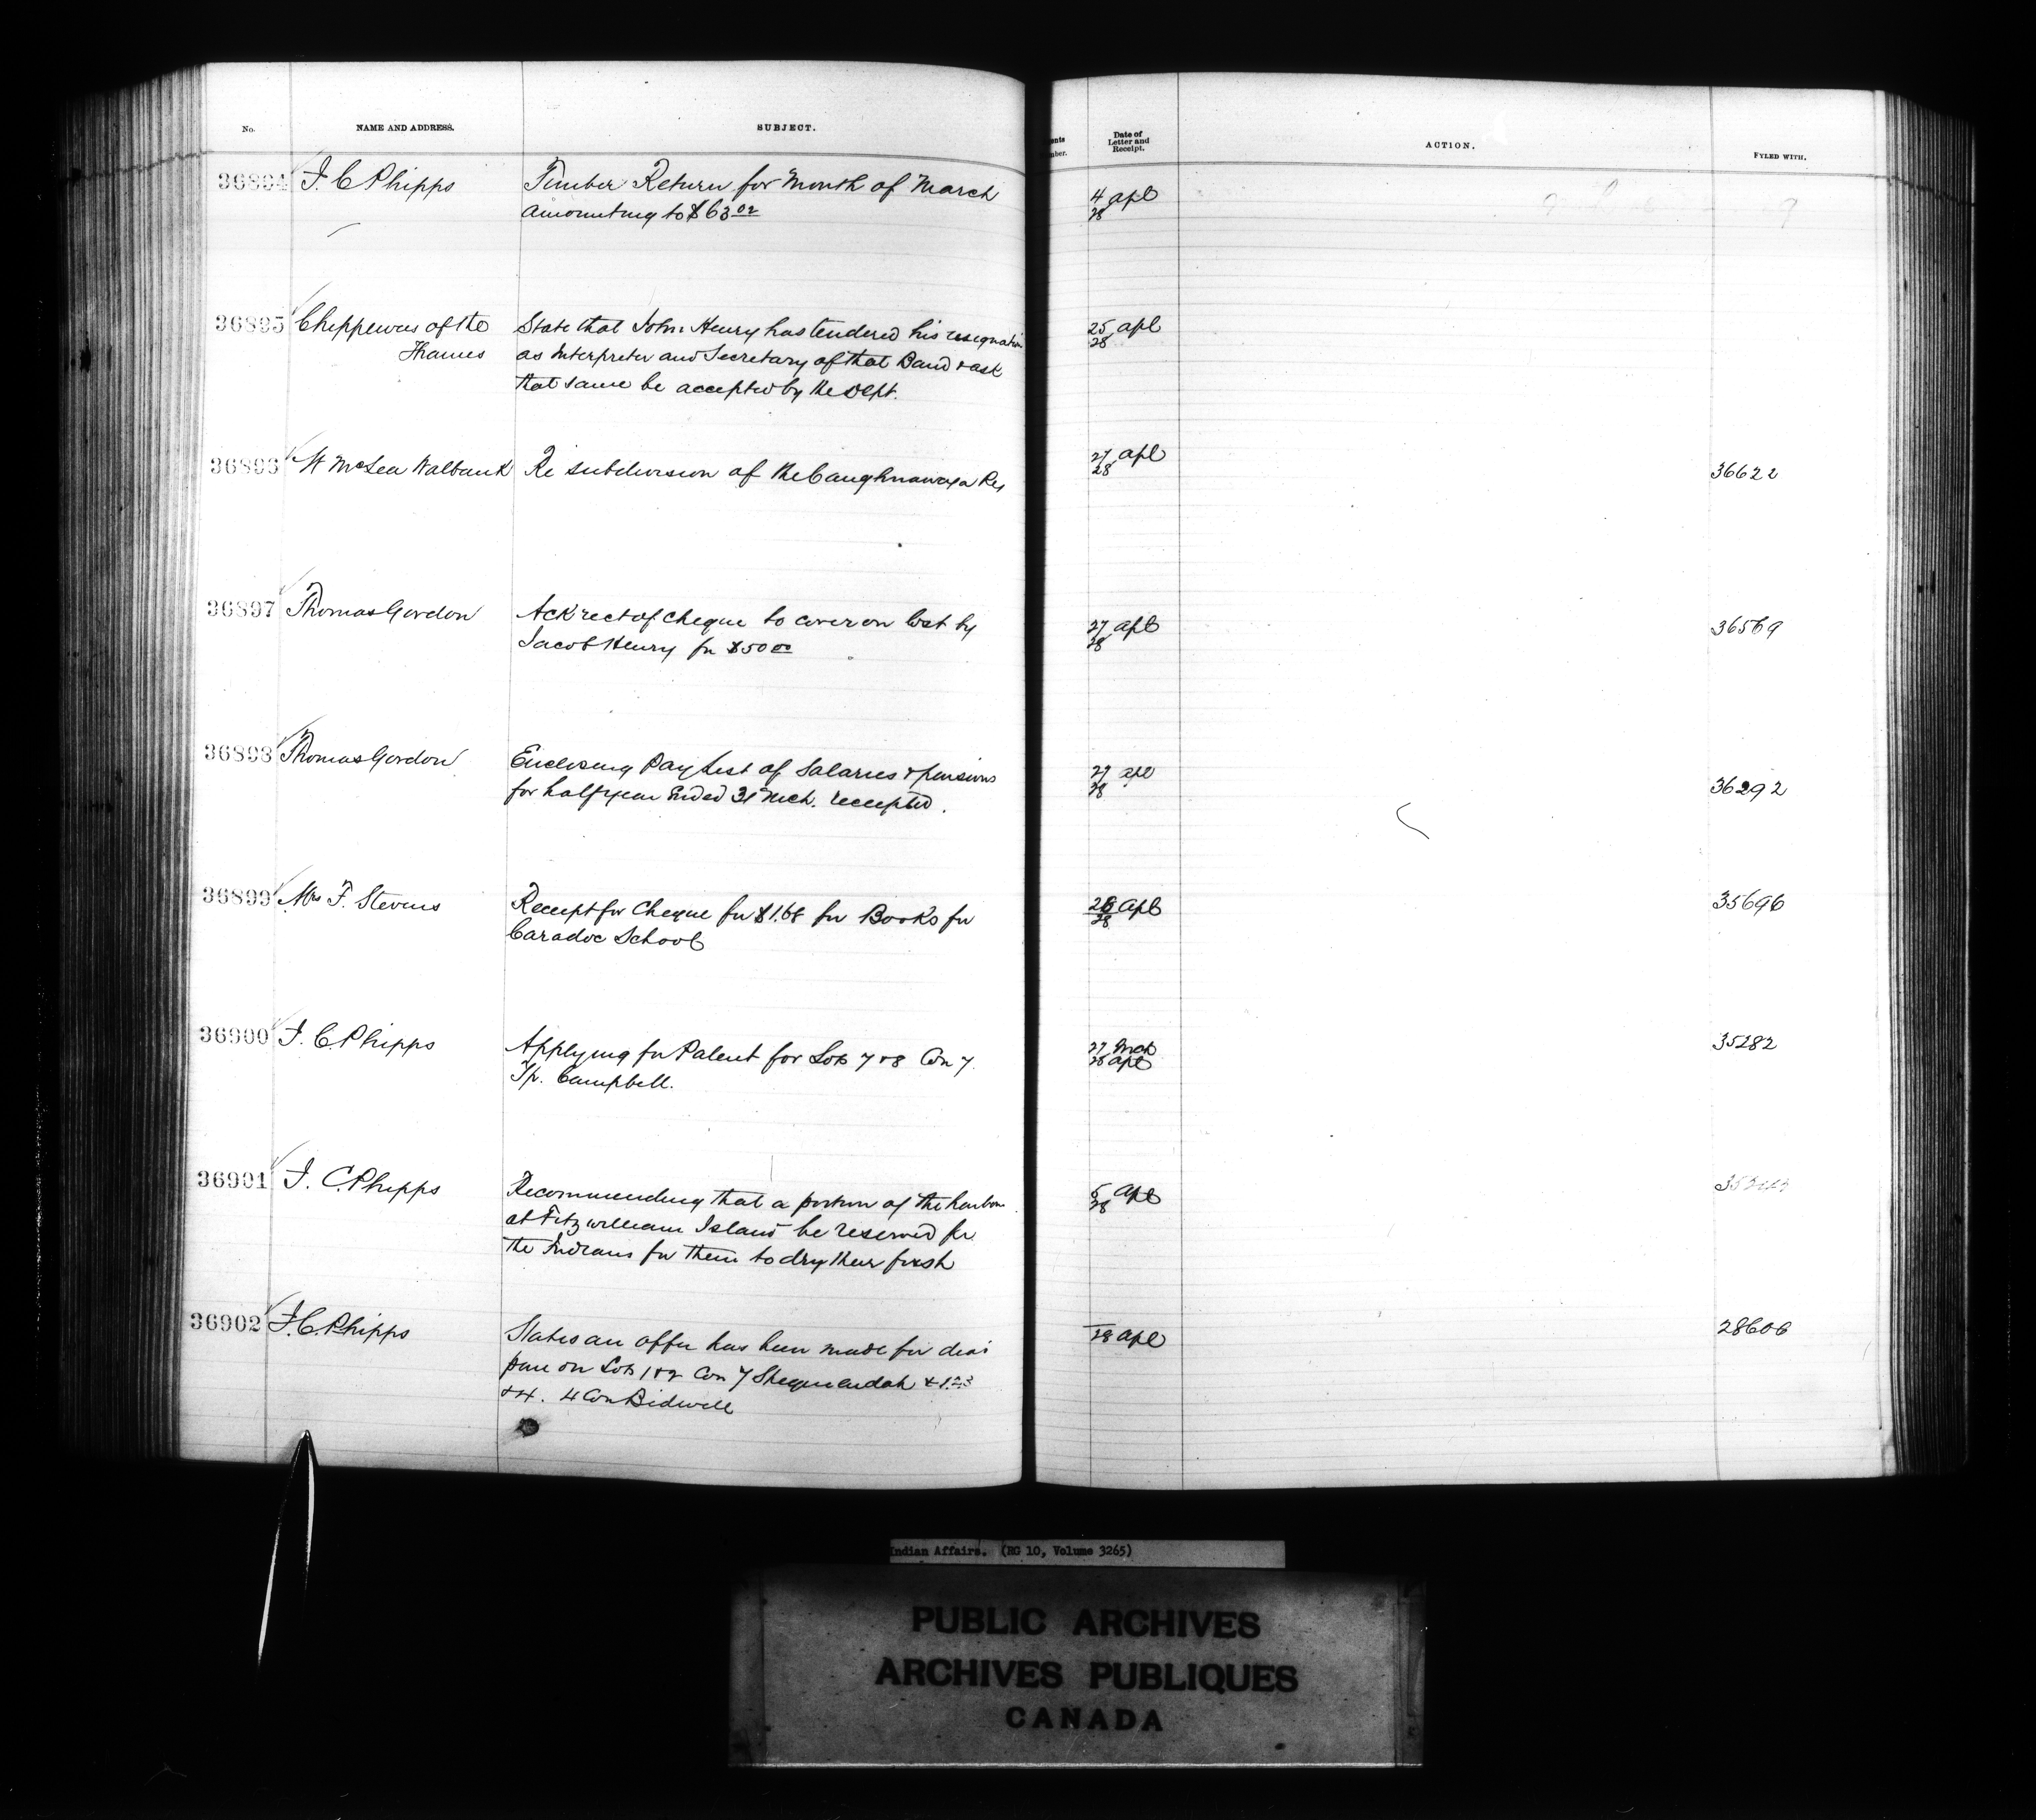 No. NAME AND ADDRESS. SUBJECT.
ents
mber.
Date of
Letter and
Receipt.
ACTION. FYLED WITH.
36894 J. C Phipps Timber Return for Month of March 4 apl
amounting to $63 02 28
36895 Chippewas of the State that John Henry has tendered his resignation 25 apl
Thames as Interpreter and Secretary of that Band & ask 28
that same be accepted by the Dept.
36896 W McLea Walbank Re subdivision of the Caughnawaga Res 27 apl 36622
28
36897 Thomas Gordon Ack rect of cheque to cover on lost by 27 apl 36569
Jacob Henry for $50 00 28
36898 Thomas Gordon Enclosing Pay List of Salaries & pensions 27 apl 36292
for half year Ended 31 Mch. receipted. 28
36899 Mrs F. Stevens Receipt for Cheque for $1.68 for Books for 26 apl 35696
Caradoc School 28
36900 J. C. Phipps Applying for Patent for Lots 7 & 8 Con 7 27 Mch 35282
Tp. Campbell. 28 apl
36901 J. C. Phipps Recommending that a portion of the harbour 5 apl
at Fitzwilliam Island be reserved for 28
the Indians for them to dry their fish
36902 J. C. Phipps States an offer has been made for dead 28 apl 28606
pine on Lots 1 & 2 Con 7 Sheguiandah & 1.2.3
& 4. 4 Con Bidwell
Indian Affairs. (RG 10, Volume 3265)
PUBLIC ARCHIVES
ARCHIVES PUBLIQUES
CANADA